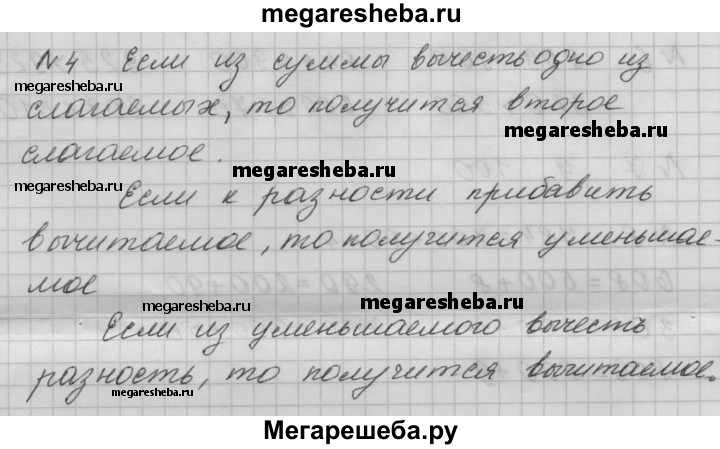 megaresheba.ru
№4 Если из суммы вычесть одно из
megaresheba.ru
слагаемых, то получится второе
megaresheba.ru
слагаемое.
megaresheba.ru
megaresheba.ru
Если к разности прибавить
вычитаемое, то получится уменьшае-
мое
megaresheba.ru
megaresheba.ru
Если из уменьшаемого вычесть
разность, то получится вычитаемое.
megaresheba.ru
Мегарешеба.ру